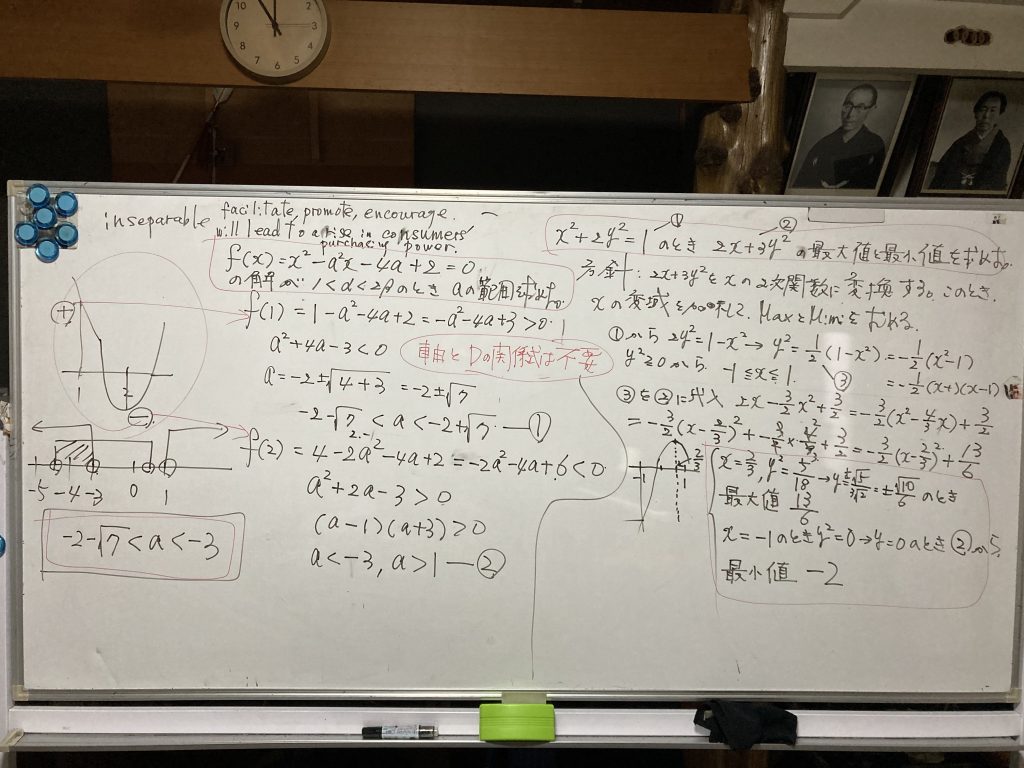 inseparable facilitate, promote, encourage.
will lead to a rise in consumers'
purchasing power.
f(x) = x² - a²x - 4a + 2 = 0
の解が 1<α<2<βのとき aの範囲を求めよ。
f(1) = 1 - a² - 4a + 2 = -a² - 4a + 3 > 0
a² + 4a - 3 < 0
a = -2 ± √4+3 = -2 ± √7
-2-√7 < a < -2+√7 — ①
軸とDの関係式は不要
f(2) = 4 - 2a² - 4a + 2 = -2a² - 4a + 6 < 0
a² + 2a - 3 > 0
(a-1)(a+3) > 0
a < -3, a > 1 — ②
+
1 2
−
-5 -4 -3 0 1
-2-√7 < a < -3
①
②
x² + 2y² = 1 のとき 2x + 3y² の最大値と最小値を求めよ。
方針: 2x+3y²をxの2次関数に変換する。このとき、
xの変域を MaxとMiniを求める。
①から 2y² = 1-x² → y² = 1/2(1-x²) = -1/2(x²-1)
y² ≧ 0 から -1 ≦ x ≦ 1. ③ = -1/2(x+1)(x-1)
③を②に代入 2x - 3/2x² + 3/2 = -3/2(x² - 4/3x) + 3/2
= -3/2(x - 2/3)² + 3/2 × 4/9 + 3/2 = -3/2(x - 2/3)² + 13/6
-1 2/3 1
x = 2/3, y² = 5/18 → y = ±√5/3√2 = ±√10/6 のとき
最大値 13/6
x = -1 のとき y² = 0 → y = 0 のとき ②から
最小値 -2
10 11 1 2 3 4 5 6 7 8 9